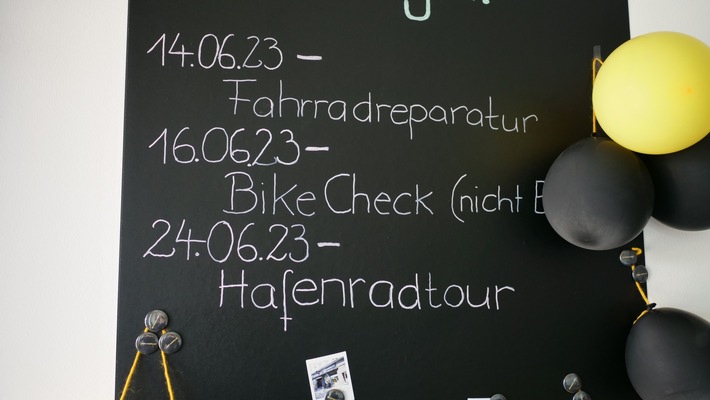 14.06.23 –
Fahrradreparatur
16.06.23 –
Bike Check (nicht
24.06.23 –
Hafenradtour